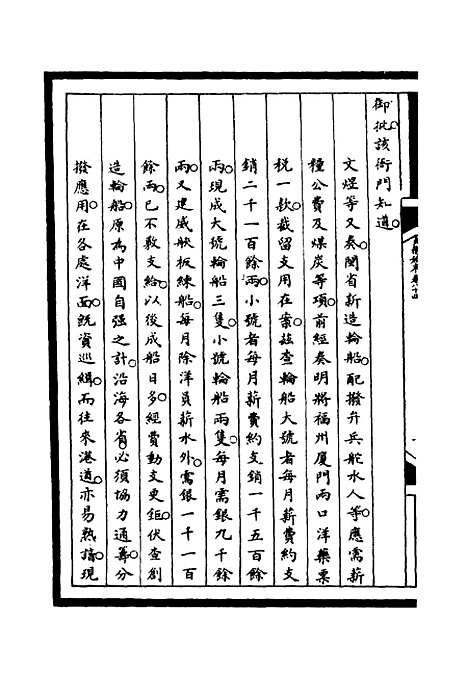 御批該衙門知道○
文煜等又奏○閩省新造輪船○配撥弁兵舵水人等○應需薪
糧公費及煤炭等項○前經奏明將福州廈門兩口洋藥票
稅一款○截留支用在案○茲查輪船大號者每月薪費約支
銷二千一百餘兩○小號者每月薪費約支銷一千五百餘
兩○現成大號輪船三隻○小號輪船兩隻○每月需銀九千餘
兩○又建威舨板練船○每月除洋員薪水外○需銀一千一百
餘兩○已不敷支給○以後成船日多○經費動支更鉅○伏查創
造輪船○原為中國自强之計○沿海各省○必須協力通籌○分
撥應用○在各處洋面○既資巡緝○而往來港道○亦易熟諳○現